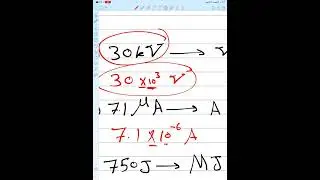 30kV → V
30 x10³ V
7.1 µA → A
7.1 x10⁻⁶ A
750J → MJ